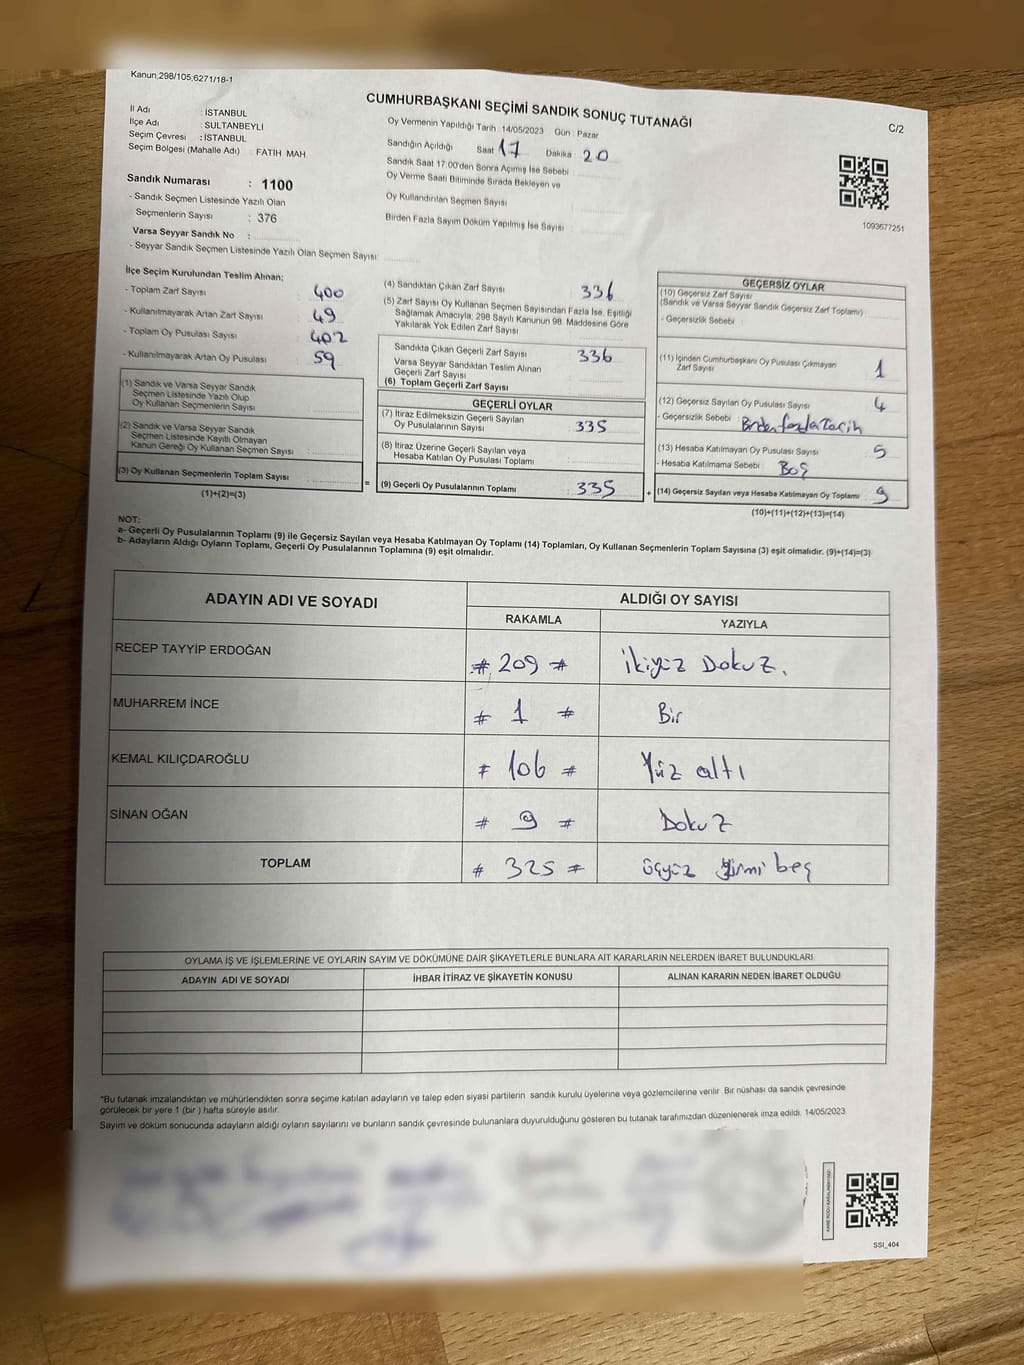 Kanun,298/105,6271/18-1
CUMHURBAŞKANI SEÇİMİ SANDIK SONUÇ TUTANAĞI
C/2
İl Adı : İSTANBUL
İlçe Adı : SULTANBEYLİ
Seçim Çevresi : İSTANBUL
Seçim Bölgesi (Mahalle Adı) : FATİH MAH
Sandık Numarası : 1100
- Sandık Seçmen Listesinde Yazılı Olan
Seçmenlerin Sayısı : 376
Varsa Seyyar Sandık No :
- Seyyar Sandık Seçmen Listesinde Yazılı Olan Seçmen Sayısı
Oy Vermenin Yapıldığı Tarih :14/05/2023 Gün : Pazar
Sandığın Açıldığı Saat 17 Dakika : 20
Sandık Saat 17:00'den Sonra Açımış İse Sebebi :
Oy Verme Saati Bitiminde Sırada Bekleyen ve
Oy Kullandırılan Seçmen Sayısı
Birden Fazla Sayım Döküm Yapılmış İse Sayısı
1093677251
İlçe Seçim Kurulundan Teslim Alınan;
- Toplam Zarf Sayısı : 400
- Kullanılmayarak Artan Zarf Sayısı : 49
- Toplam Oy Pusulası Sayısı : 402
- Kullanılmayarak Artan Oy Pusulası : 59
(1) Sandık ve Varsa Seyyar Sandık
Seçmen Listesinde Yazılı Olup
Oy Kullanan Seçmenlerin Sayısı :
(2) Sandık ve Varsa Seyyar Sandık
Seçmen Listesinde Kayıtlı Olmayan
Kanun Gereği Oy Kullanan Seçmen Sayısı :
(3) Oy Kullanan Seçmenlerin Toplam Sayısı :
(1)+(2)=(3)
(4) Sandıktan Çıkan Zarf Sayısı : 336
(5) Zarf Sayısı Oy Kullanan Seçmen Sayısından Fazla İse, Eşitliği
Sağlamak Amacıyla; 298 Sayılı Kanunun 98. Maddesine Göre
Yakılarak Yok Edilen Zarf Sayısı :
Sandıkta Çıkan Geçerli Zarf Sayısı : 336
Varsa Seyyar Sandıktan Teslim Alınan
Geçerli Zarf Sayısı
(6) Toplam Geçerli Zarf Sayısı
GEÇERLİ OYLAR
(7) İtiraz Edilmeksizin Geçerli Sayılan
Oy Pusulalarının Sayısı : 335
(8) İtiraz Üzerine Geçerli Sayılan veya
Hesaba Katılan Oy Pusulası Toplamı :
= (9) Geçerli Oy Pusulalarının Toplamı : 335 +
GEÇERSİZ OYLAR
(10) Geçersiz Zarf Sayısı
(Sandık ve Varsa Seyyar Sandık Geçersiz Zarf Toplamı) :
- Geçersizlik Sebebi :
(11) İçinden Cumhurbaşkanı Oy Pusulası Çıkmayan
Zarf Sayısı : 1
(12) Geçersiz Sayılan Oy Pusulası Sayısı : 4
- Geçersizlik Sebebi : Birden fazla Tercih
(13) Hesaba Katılmayan Oy Pusulası Sayısı : 5
- Hesaba Katılmama Sebebi : Boş
(14) Geçersiz Sayılan veya Hesaba Katılmayan Oy Toplamı : 9
(10)+(11)+(12)+(13)=(14)
NOT:
a- Geçerli Oy Pusulalarının Toplamı (9) ile Geçersiz Sayılan veya Hesaba Katılmayan Oy Toplamı (14) Toplamları, Oy Kullanan Seçmenlerin Toplam Sayısına (3) eşit olmalıdır. (9)+(14)=(3)
b- Adayların Aldığı Oyların Toplamı, Geçerli Oy Pusulalarının Toplamına (9) eşit olmalıdır.
ADAYIN ADI VE SOYADI
ALDIĞI OY SAYISI
RAKAMLA YAZIYLA
RECEP TAYYİP ERDOĞAN # 209 # ikiyüz Dokuz.
MUHARREM İNCE # 1 # Bir
KEMAL KILIÇDAROĞLU # 106 # Yüz altı
SİNAN OĞAN # 9 # Dokuz
TOPLAM # 325 # üçyüz yirmi beş
OYLAMA İŞ VE İŞLEMLERİNE VE OYLARIN SAYIM VE DÖKÜMÜNE DAİR ŞİKAYETLERLE BUNLARA AİT KARARLARIN NELERDEN İBARET BULUNDUKLARI
ADAYIN ADI VE SOYADI İHBAR İTİRAZ VE ŞİKAYETİN KONUSU ALINAN KARARIN NEDEN İBARET OLDUĞU
*Bu tutanak imzalandıktan ve mühürlendikten sonra seçime katılan adayların ve talep eden siyasi partilerin sandık kurulu üyelerine veya gözlemcilerine verilir. Bir nüshası da sandık çevresinde
görülecek bir yere 1 (bir ) hafta süreyle asılır.
Sayım ve döküm sonucunda adayların aldığı oyların sayılarını ve bunların sandık çevresinde bulunanlara duyurulduğunu gösteren bu tutanak tarafımızdan düzenlenerek imza edildi. 14/05/2023
SSI_404